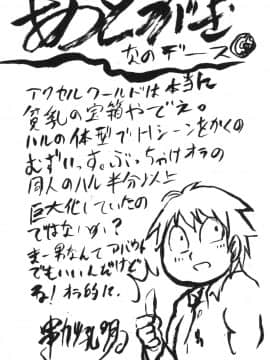 あとがき
炎のデース
アクセルワールドは本当に
貧乳の宝箱やでえ。
ハルの体型でHシーンをかくの
むずいっす。ぶっちゃけオラの
同人のハル半分以上
巨大化していたの
ではないか?
まー男なんてアバウト
でもいいんだけど
る!オラ的に.